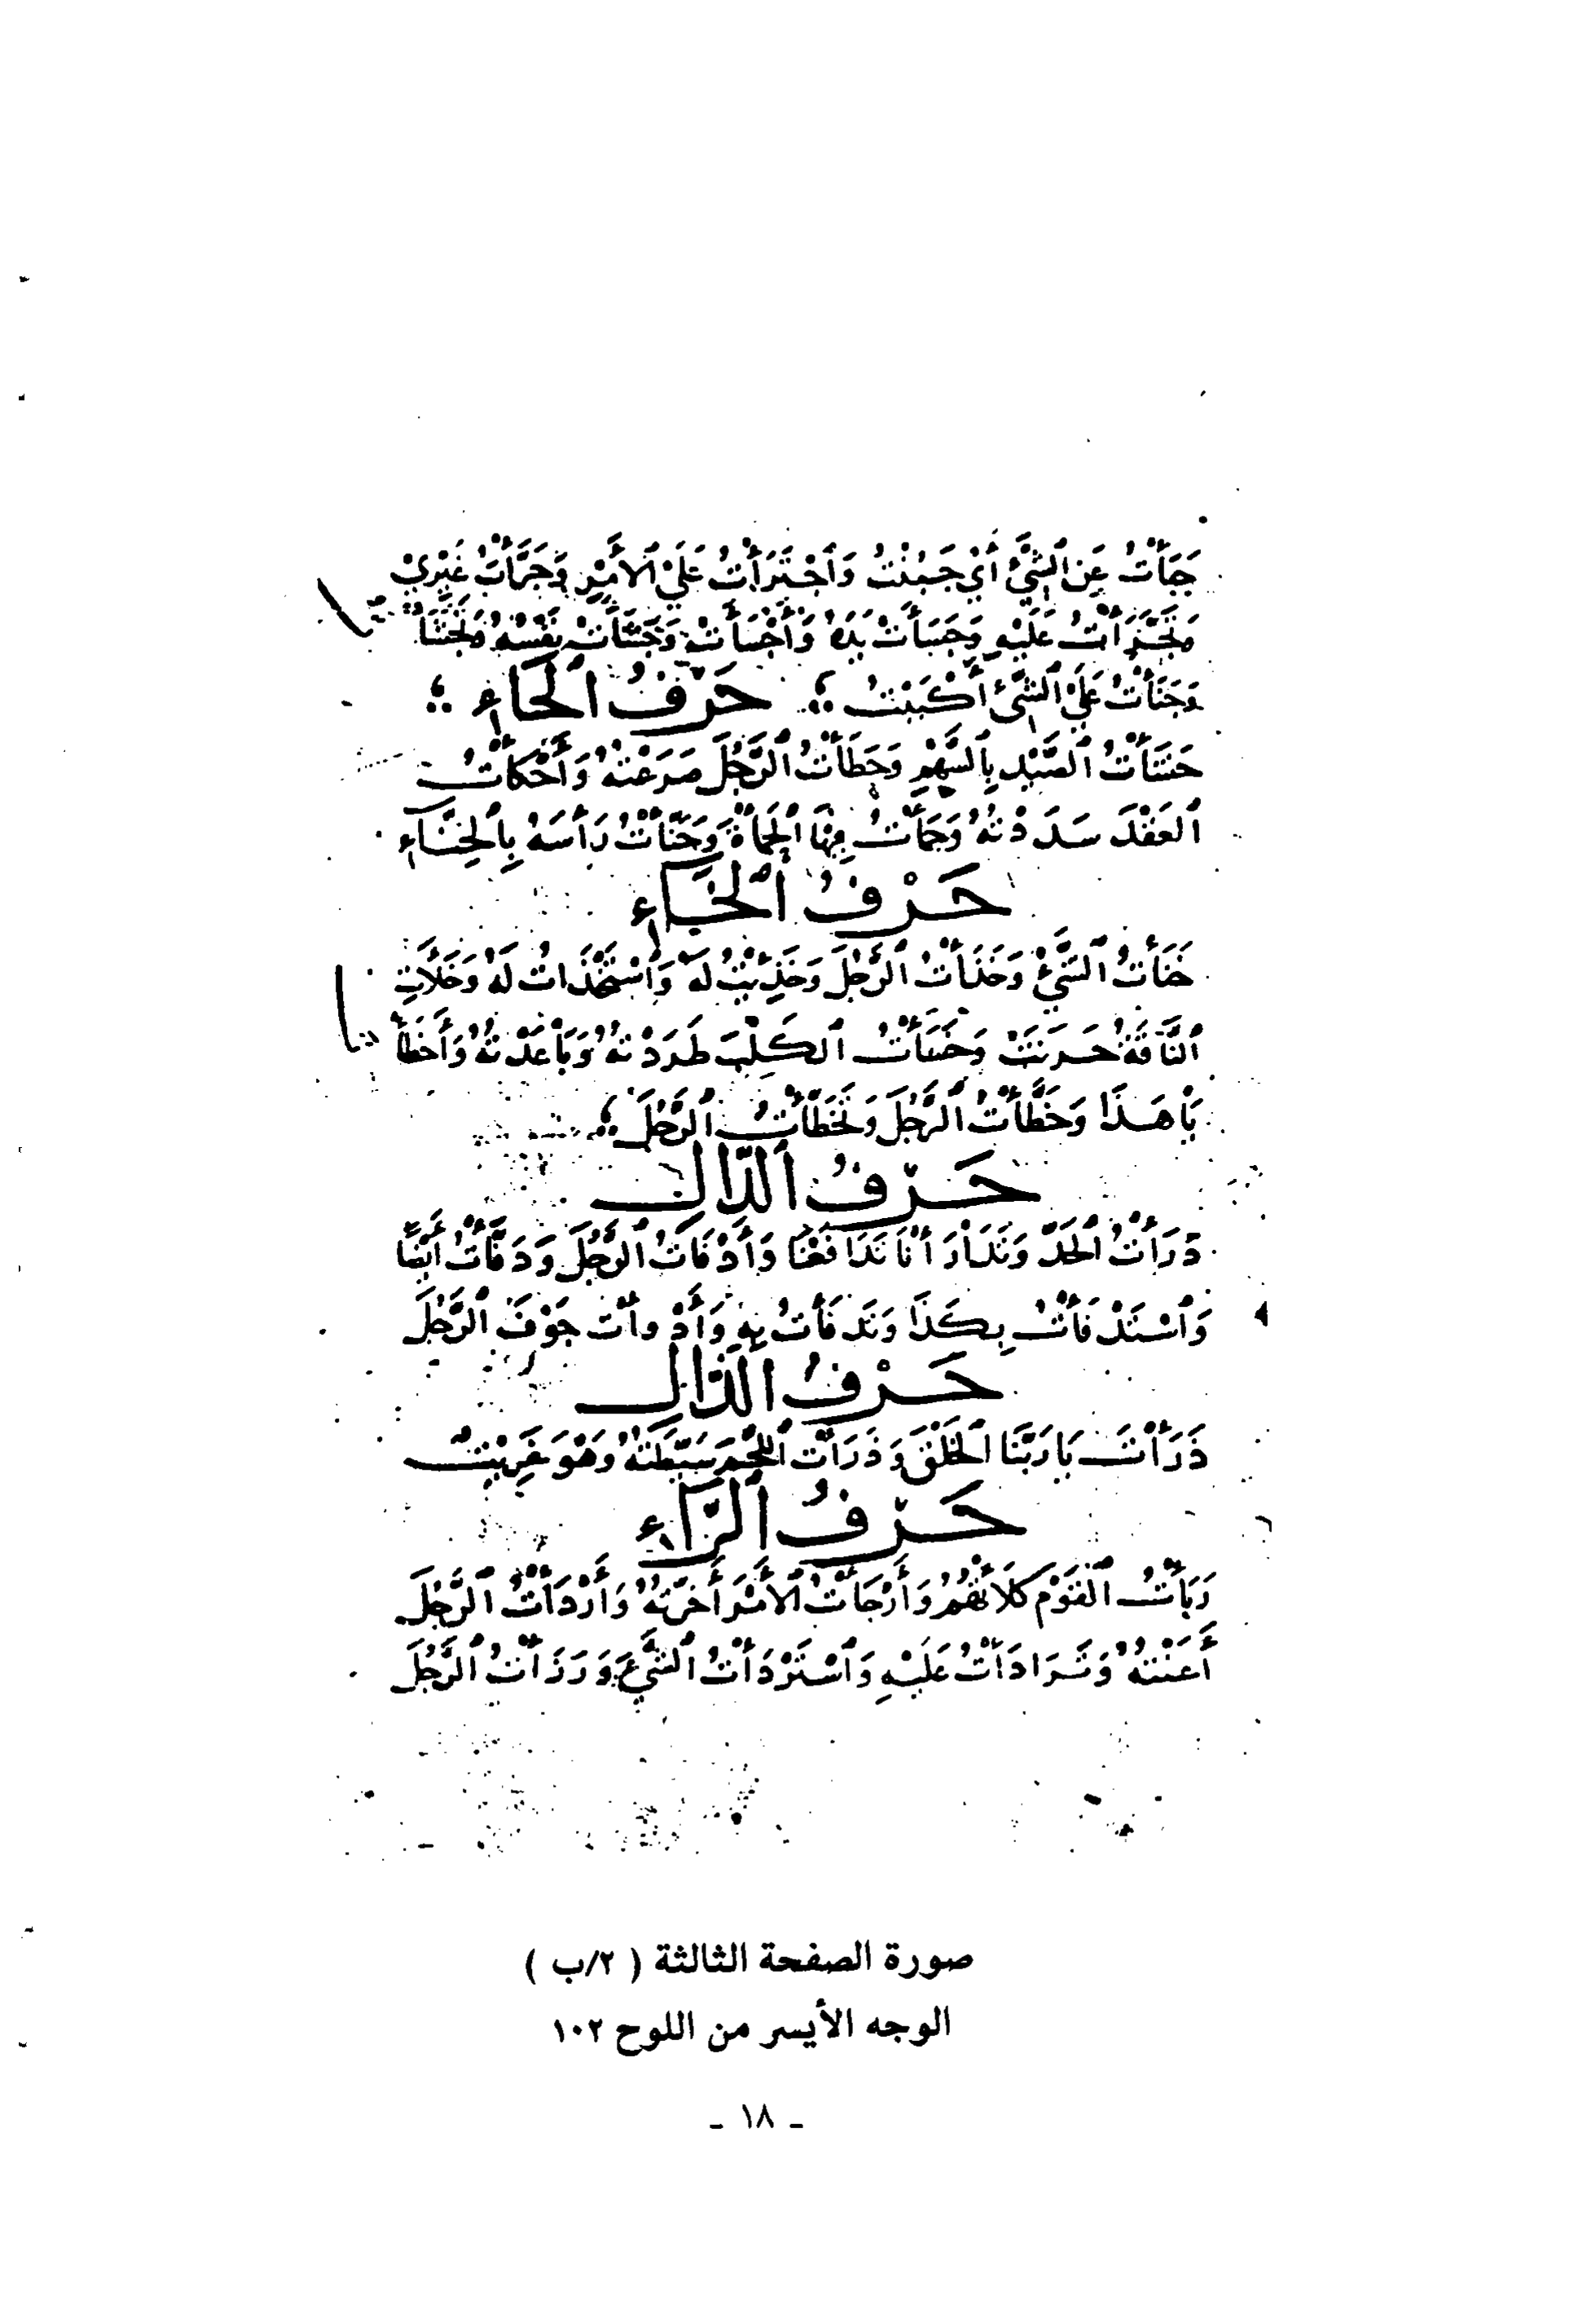 جَبَأْتُ عَنِ الشَّيْءِ أَيْ جَبُنْتُ وَاجْتَرَأْتُ عَلَيَّ الأَمْرِ وَجَرَّأْتُ غَيْرِيْ
وَتَجَرَّأْتُ عَلَيْهِ وَجَسَأَتْ يَدَهُ وَأَجْسَأَتْ وَجَشَأَتْ نَفْسُهُ وَتَجَشَّأَ
وَجَنَأْتُ عَلَيَّ الشَّيْءِ أَكْبَبْتُ ؛ حَرْفُ الْحَاءِ ؛
حَشَأْتُ الصَّيْدَ بِالسَّهْمِ وَحَطَأْتُ الرَّجُلَ صَرَعْتُهُ وَأَحْكَأْتُ
الْعَقْدَ سَدَدْتُهُ وَحَمَأْتُ فِيْهَا الْحَمْأَةَ وَحَنَّأْتُ رَأْسَهُ بِالْحِنَّاءِ
حَرْفُ الْخَاءِ
خَبَأْتُ الشَّيْءَ وَخَذَأْتُ الرَّجُلَ وَخَذِئْتُ لَهُ وَاسْتَخْذَأْتُ لَهُ وَخَلَأَتِ
النَّاقَةُ حَرَنَتْ وَخَسَأْتُ الْكَلْبَ طَرَدْتُهُ وَبَاعَدْتُهُ وَأَخْطَأْتَ
يَا هَذَا وَخَطَّأْتُ الرَّجُلَ وَتَخَطَّأْتُ الرَّجُلَ ؛
حَرْفُ الدَّالِ
دَرَأْتُ الْحَدَّ وَتَدَارَأْنَا تَدَافَعْنَا وَأَدْفَأْتُ الرَّجُلَ وَدَفَّأْتُ أَيْضًا
وَاسْتَدْفَأْتُ بِكَذَا وَتَدَفَّأْتُ بِهِ وَأَدْوَأْتُ جَوْفَ الرَّجُلِ
حَرْفُ الذَّالِ
ذَرَأْتَ يَا رَبَّنَا الْخَلْقَ وَذَرَأْتُ
حَرْفُ الرَّاءِ
رَبَأْتُ الْقَوْمَ كَلَأْتُهُمْ وَأَرْجَأْتُ الأَمْرَ أَخَّرْتُهُ وَأَرْدَأْتُ الرَّجُلَ
أَعَنْتُهُ وَتَرَادَأْتُ عَلَيْهِ وَاسْتَرْدَأْتُ الشَّيْءَ وَرَزَأْتُ الرَّجُلَ
صورة الصفحة الثالثة ( ٢/ب )
الوجه الأيسر من اللوح ١٠٢
- ١٨ -